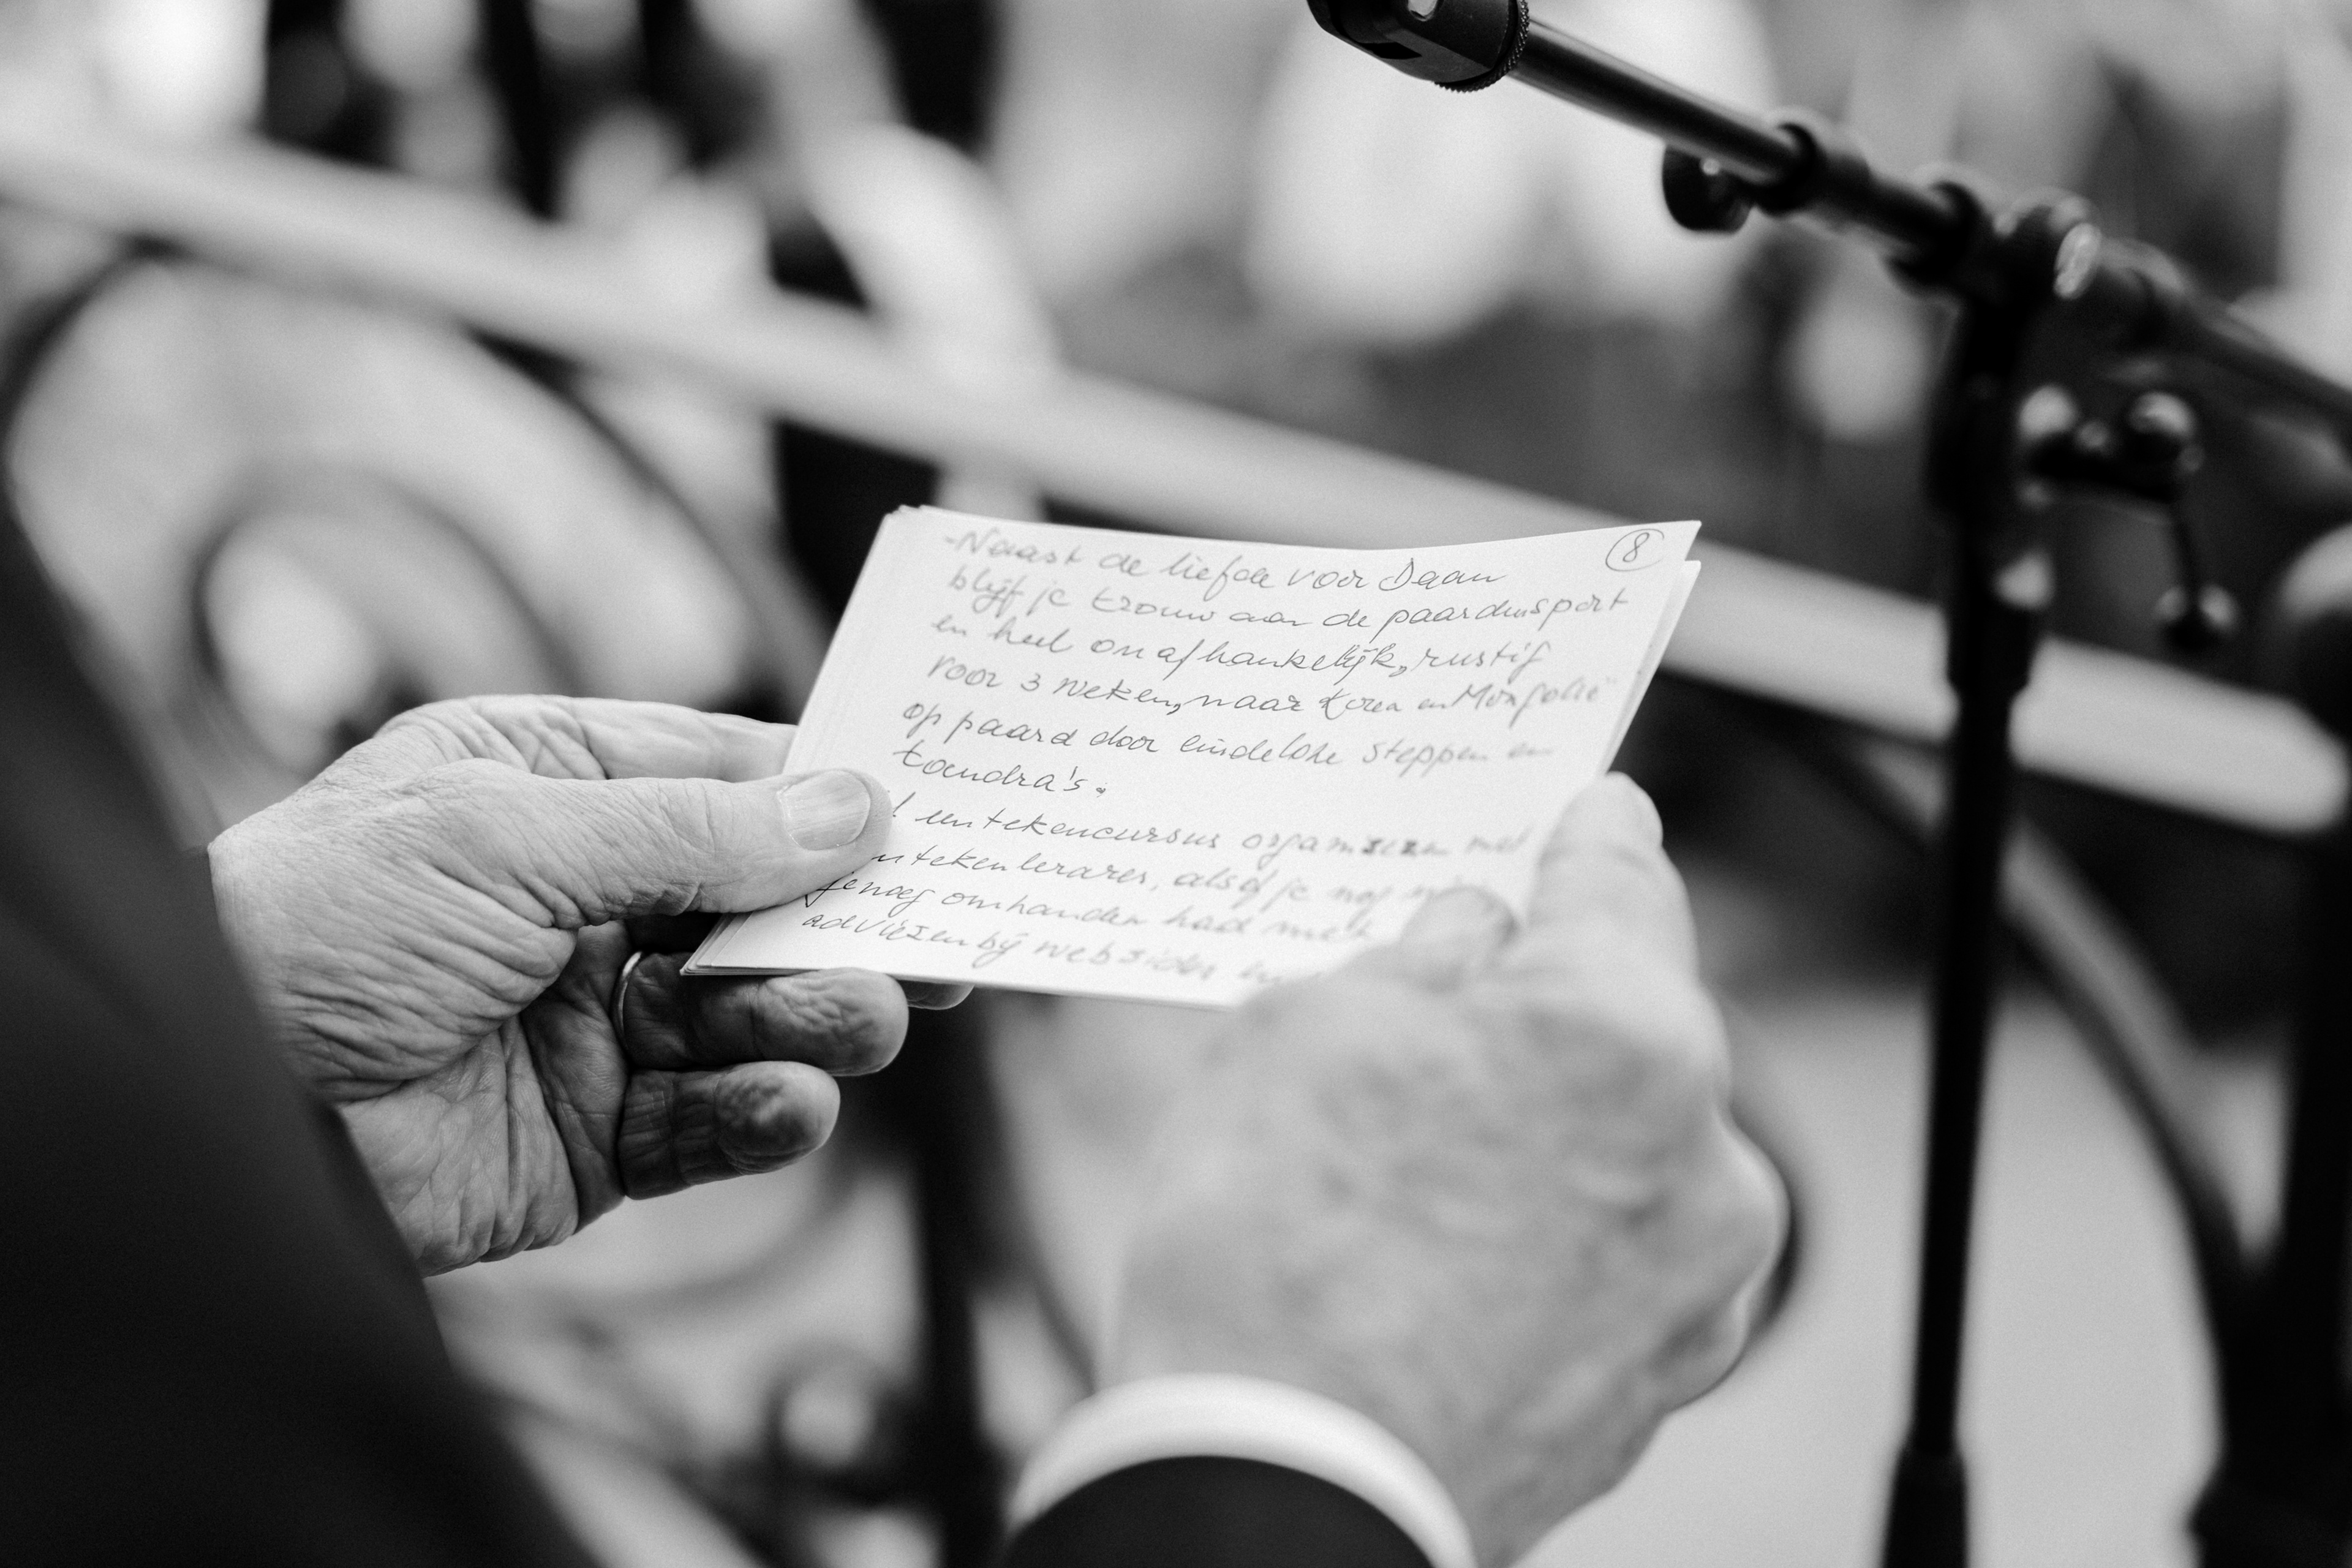 8
-Naast de liefde voor Daan
blijf je trouw aan de paardensport
en heel onafhankelijk, rustig
voor 3 weken, naar Korea en Mongolië
op paard door eindeloze steppen en
toendra's.
een tekencursus organiseren met
tekenlerares, alsof je nog
genoeg omhanden had met
adviezen bij